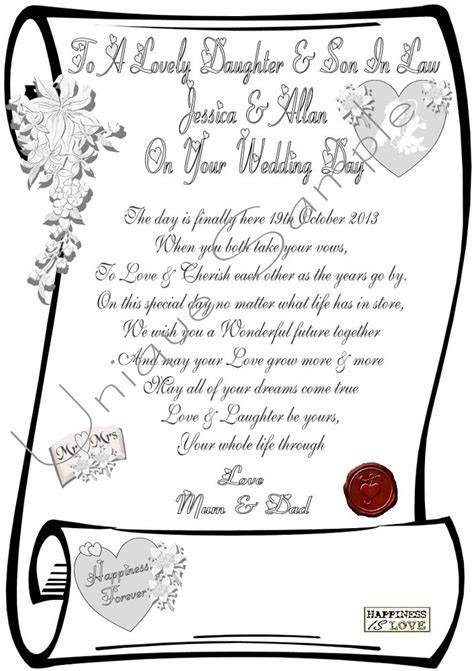 To A Lovely Daughter & Son In Law
Jessica & Allan
On Your Wedding Day
The day is finally here 19th October 2013
When you both take your vows,
To Love & Cherish each other as the years go by.
On this special day no matter what life has in store,
We wish you a Wonderful future together
And may your Love grow more & more
May all of your dreams come true
Love & Laughter be yours,
Your whole life through
Love
Mum & Dad
Mr Mrs
Unique Sample
Happiness
Forever
HAPPINESS
IS LOVE